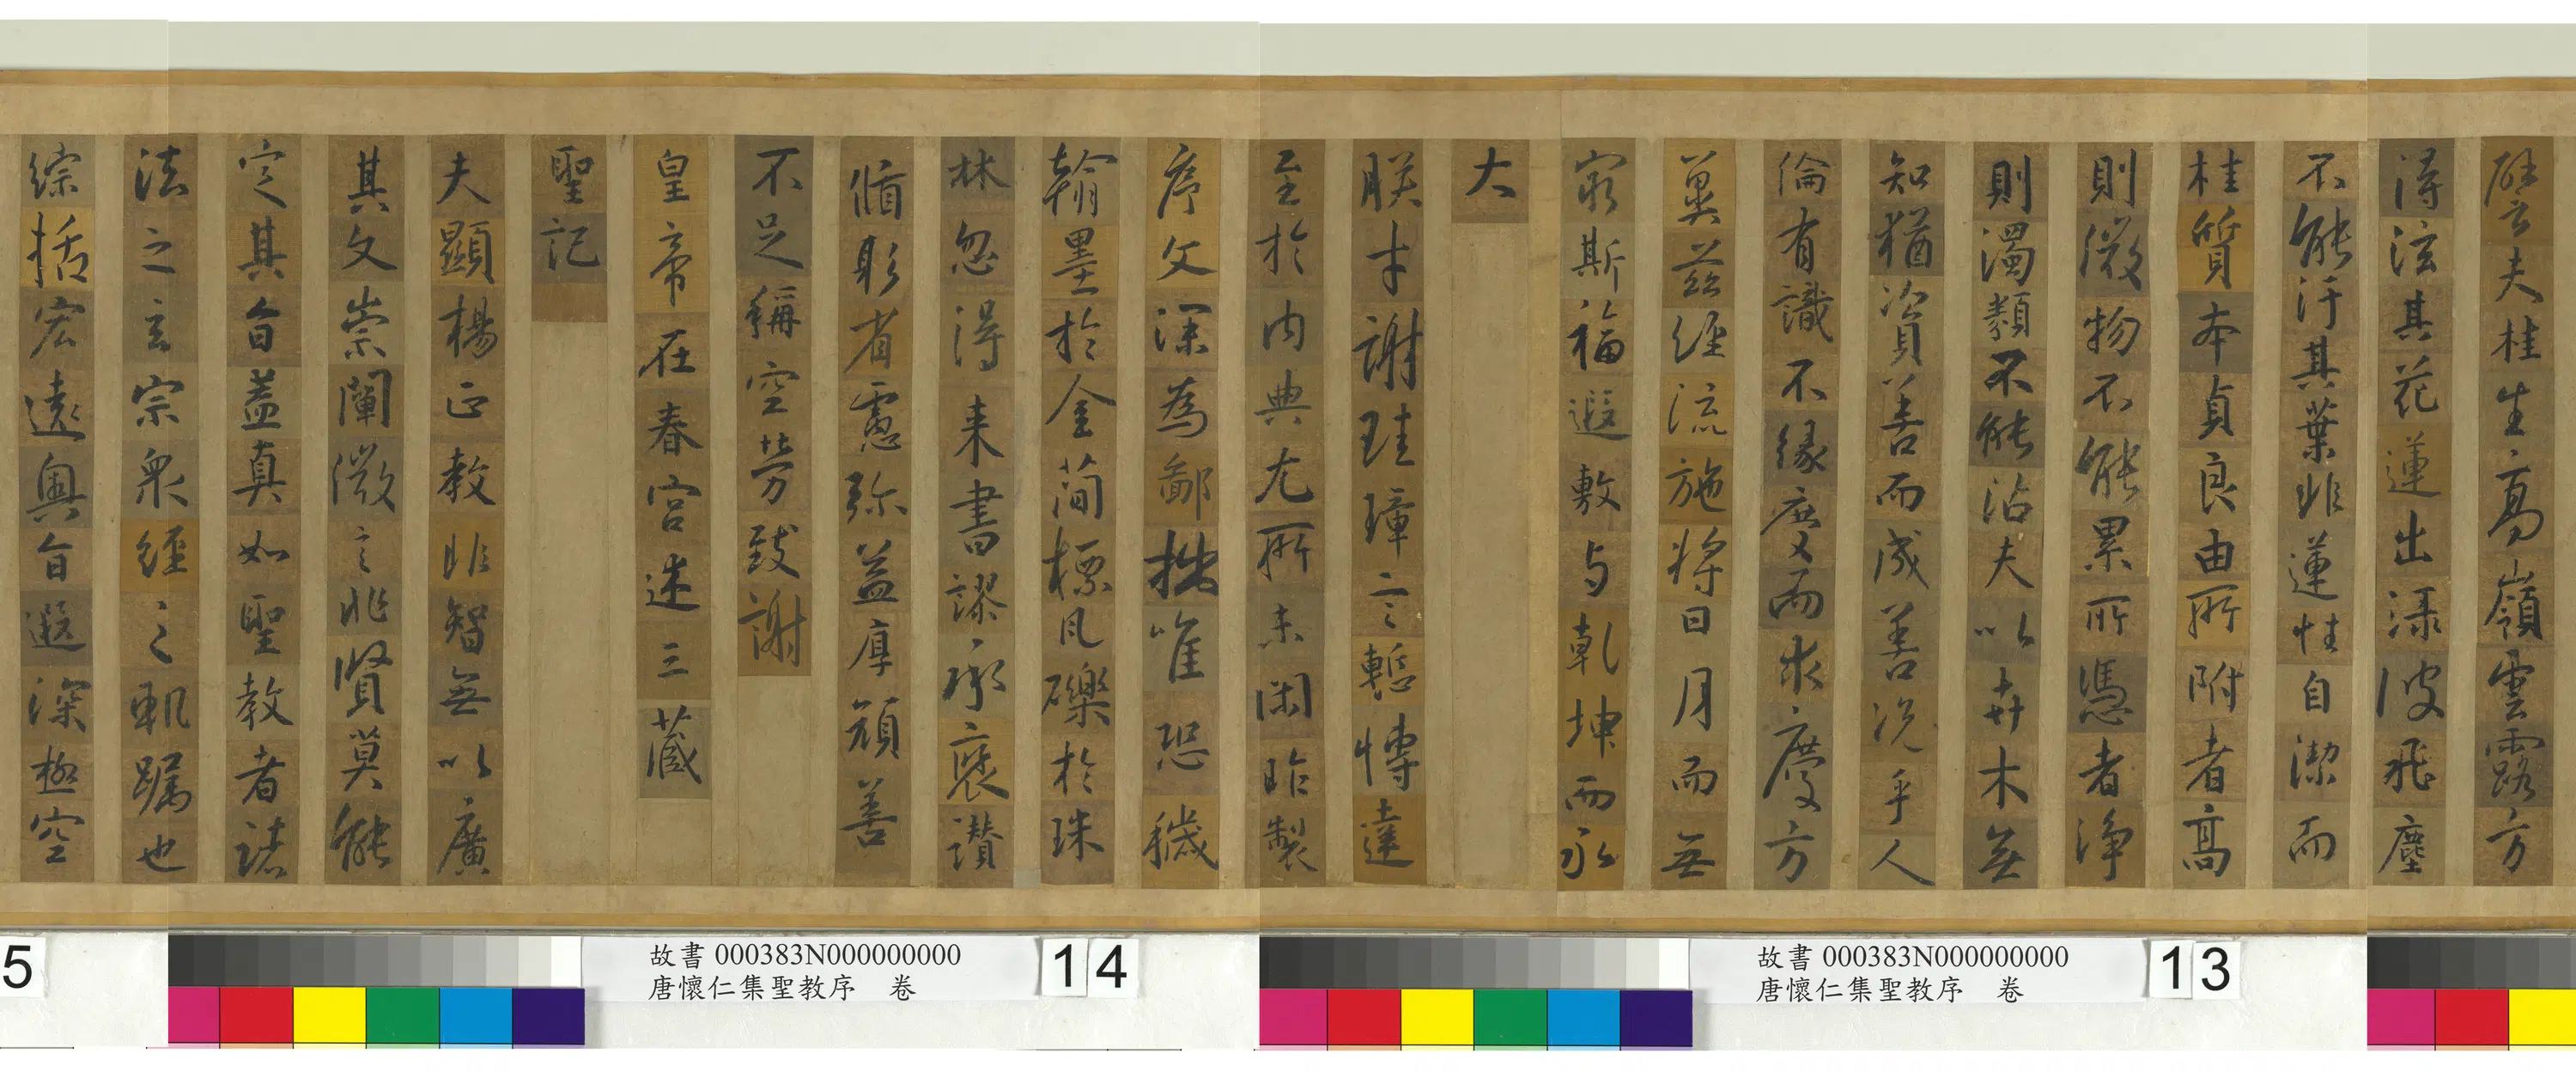 譬夫桂生高嶺雲露方
得泫其花蓮出淥波飛塵
不能汙其葉非蓮性自潔而
桂質本貞良由所附者高
則微物不能累所憑者淨
則濁類不能沾夫以卉木無
知猶資善而成善況乎人
倫有識不緣慶而求慶方
冀茲經流施將日月而無
窮斯福遐敷与乾坤而永
大
朕才謝珪璋言慙博達
至於內典尤所未閑昨製
序文深為鄙拙唯恐穢
翰墨於金簡標瓦礫於珠
林忽得來書謬承褒讚
循躬省慮弥益厚顏善
不足稱空勞致謝
皇帝在春宮述三藏
聖記
夫顯揚正教非智無以廣
其文崇闡微言非賢莫能
定其旨蓋真如聖教者諸
法之玄宗眾經之軌躅也
綜括宏遠奧旨遐深極空
故書 000383N000000000
唐懷仁集聖教序 卷
13
故書 000383N000000000
唐懷仁集聖教序 卷
14
5